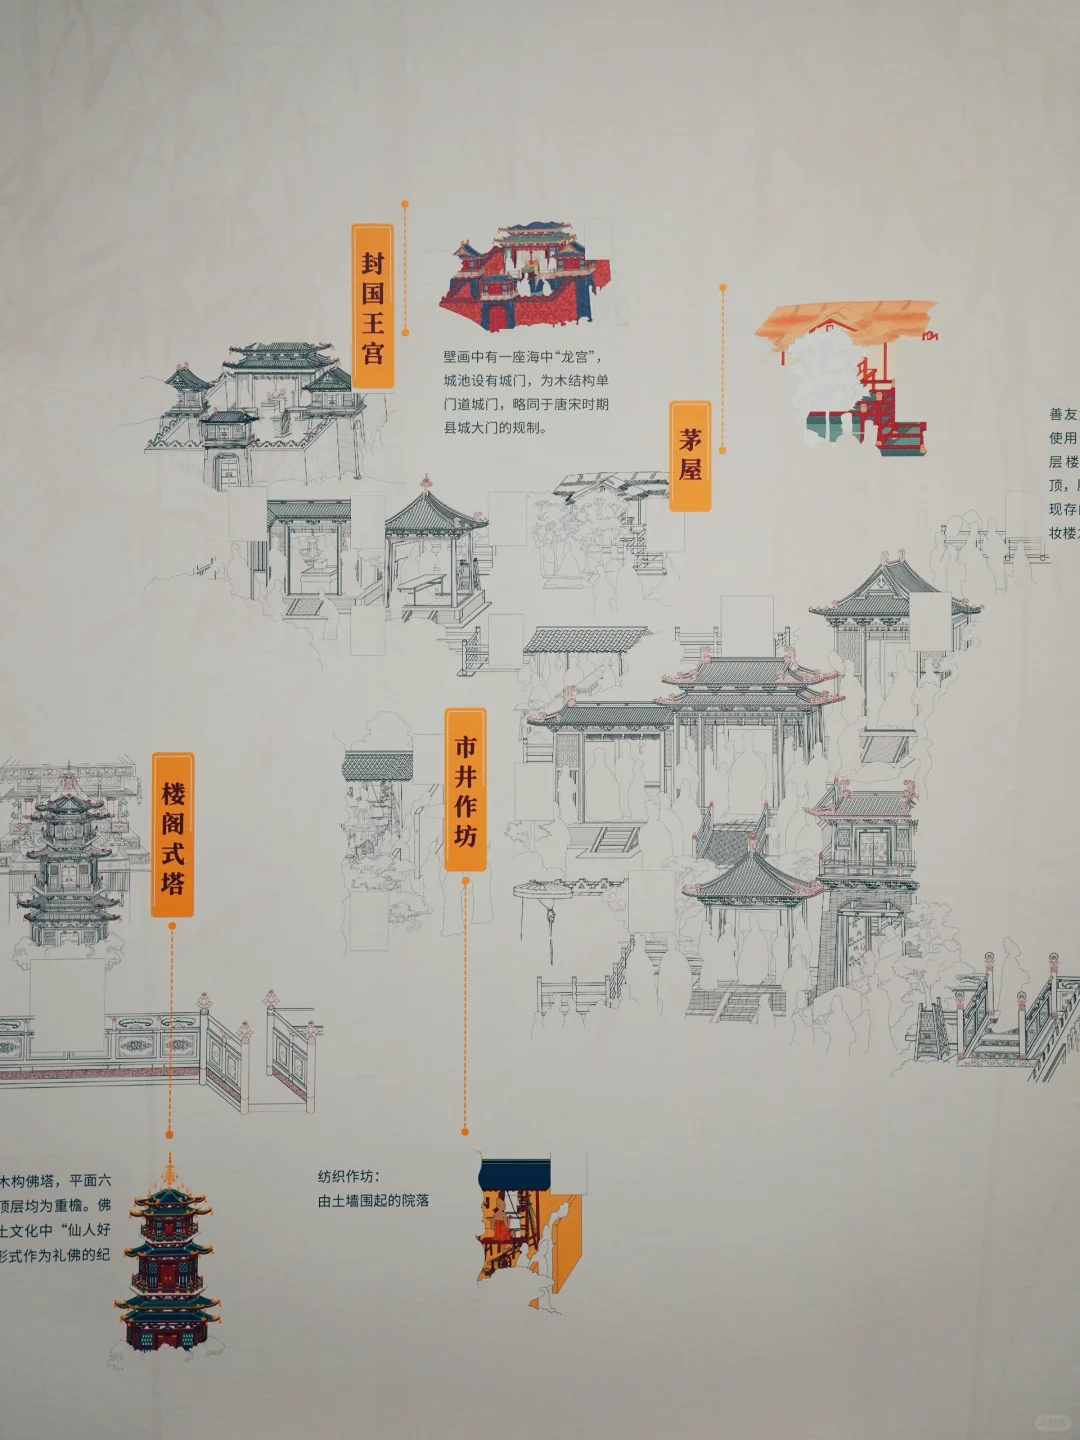 封国王宫
壁画中有一座海中“龙宫”，
城池设有城门，为木结构单
门道城门，略同于唐宋时期
县城大门的规制。
茅屋
善友
使用
层楼
顶，
现存
妆楼
市井作坊
楼阁式塔
木构佛塔，平面六
顶层均为重檐。佛
土文化中“仙人好
形式作为礼佛的纪
纺织作坊：
由土墙围起的院落